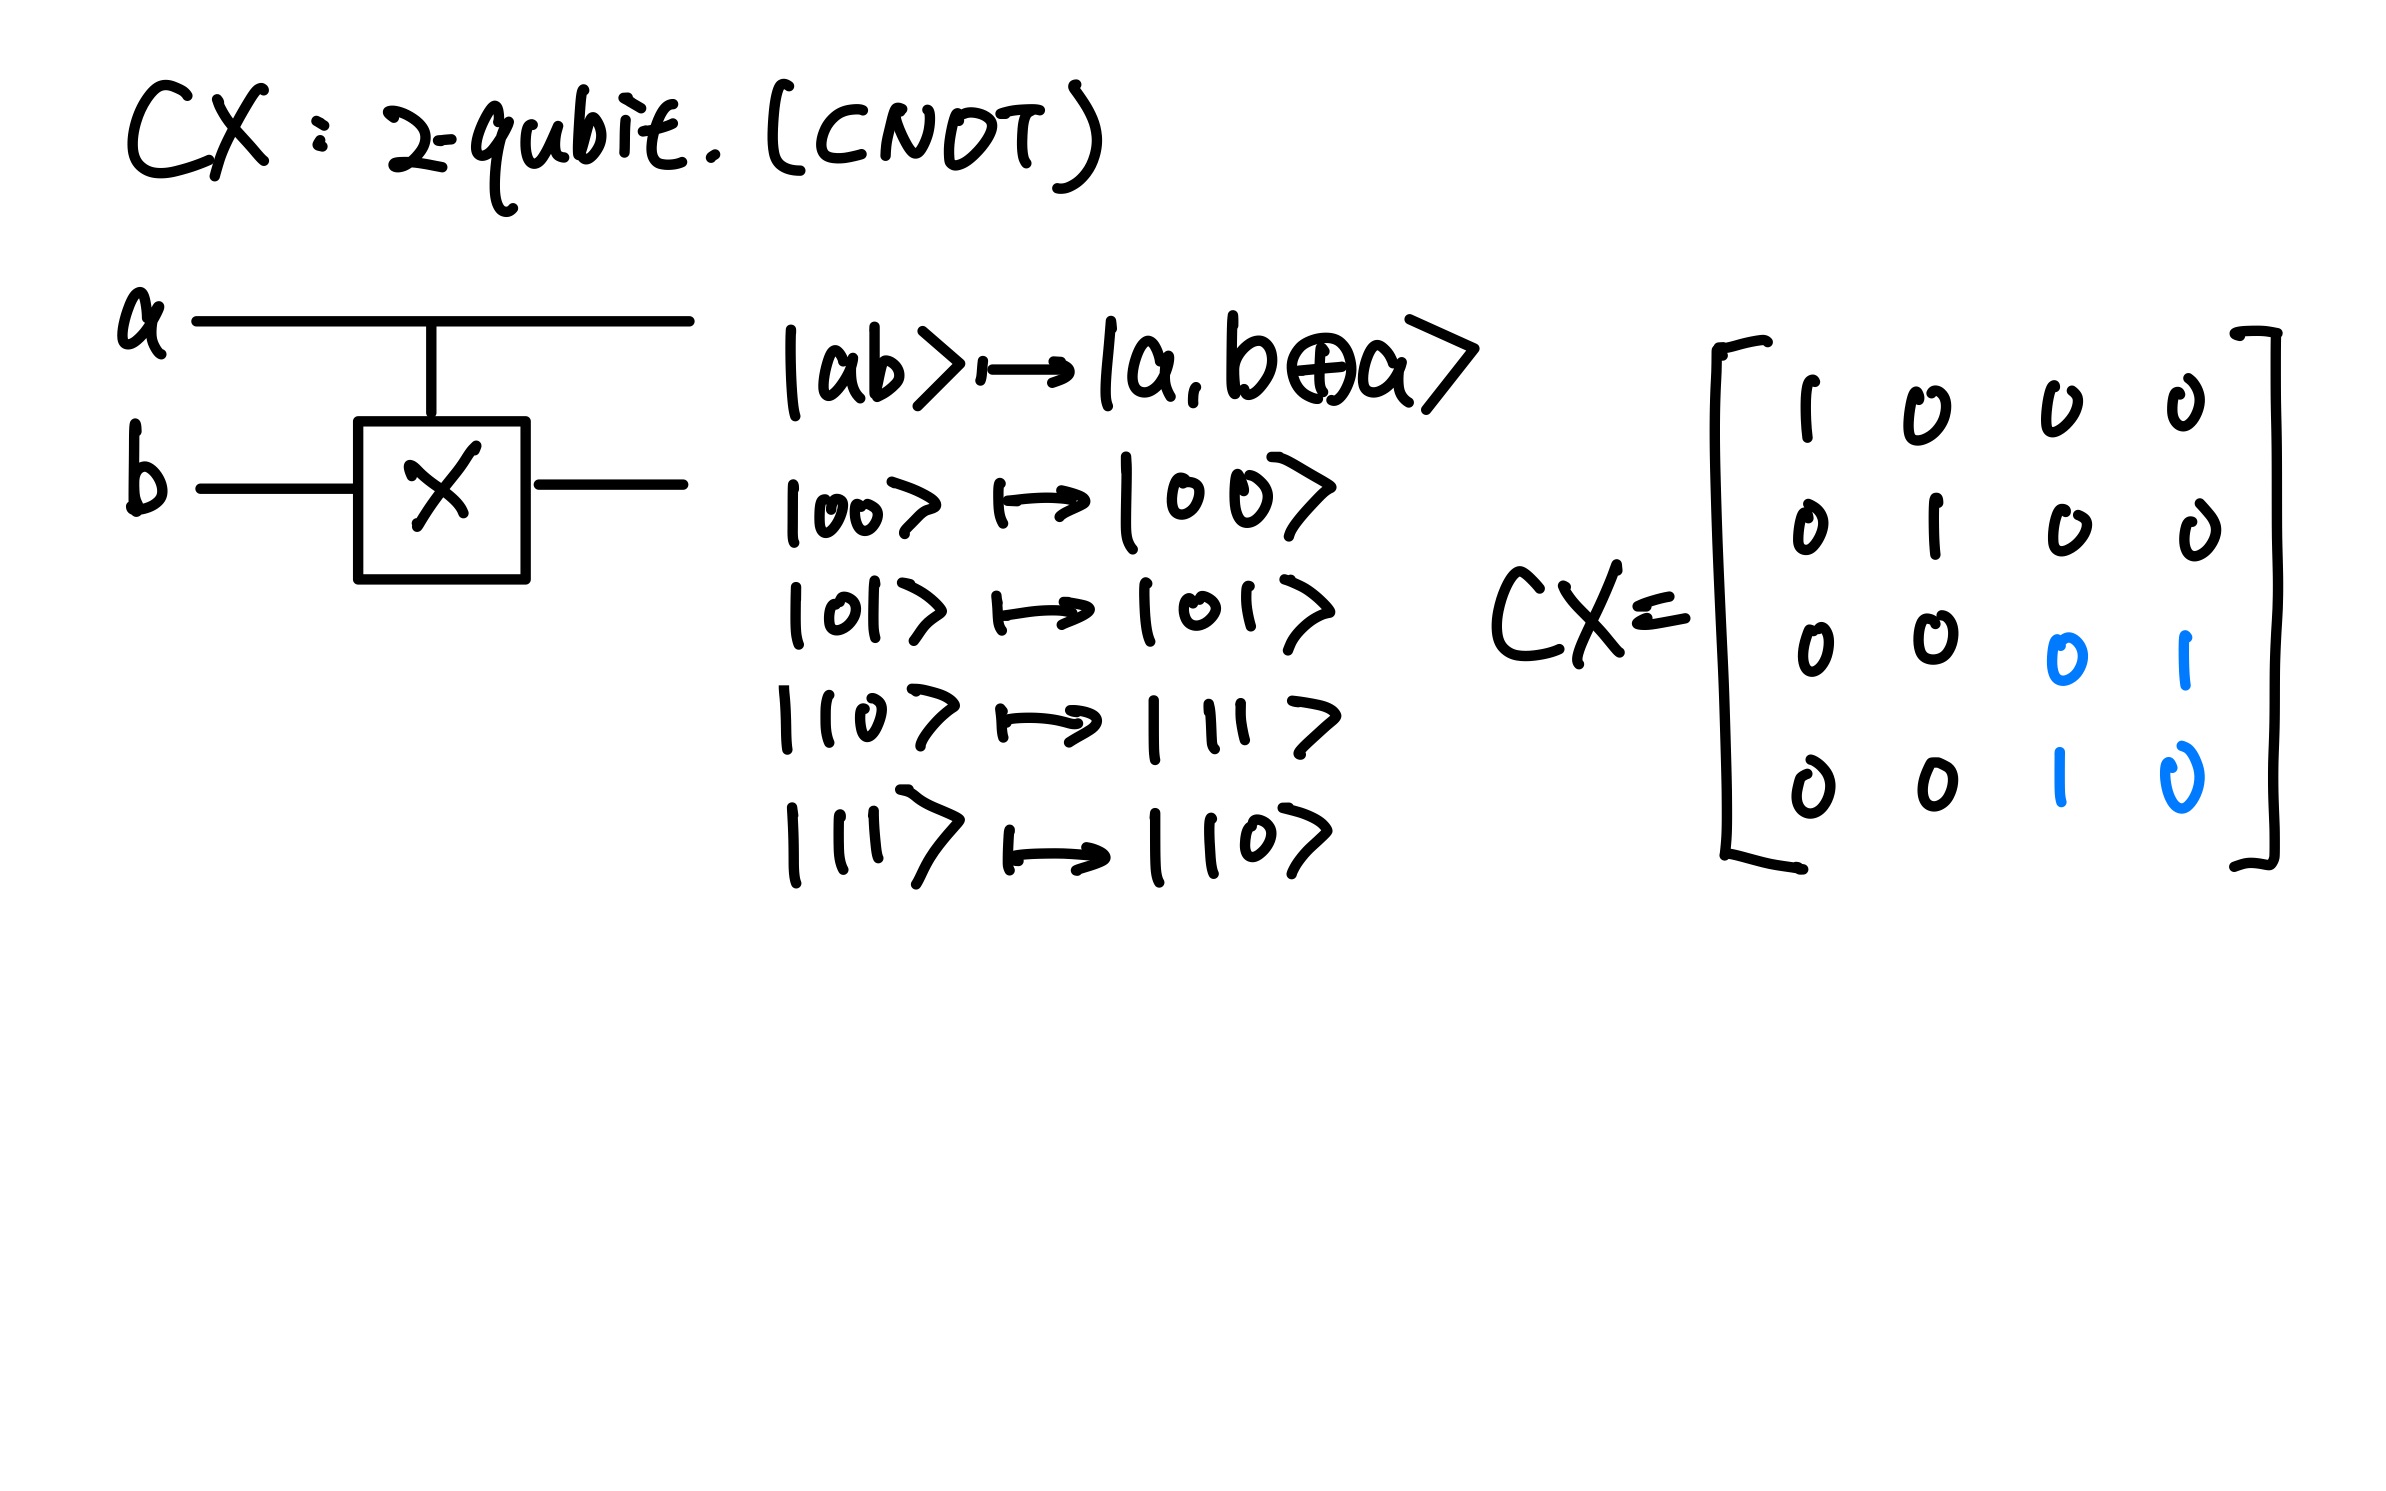 CX : 2-qubit. (CNOT)
a
b
X
|ab> ↦ |a, b⊕a>
|00> ↦ |00>
|01> ↦ |01>
|10> ↦ |11>
|11> ↦ |10>
CX =
1 0 0 0
0 1 0 0
0 0 0 1
0 0 1 0